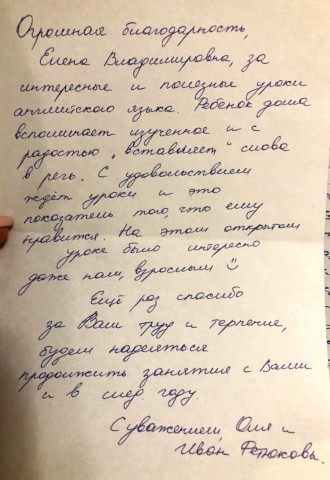 Огромная благодарность,
Елена Владимировна, за
интересные и полезные уроки
английского языка. Ребенок дома
вспоминает изученное и с
радостью „вставляет" слова
в речь. С удовольствием
ждёт уроки и это
показатель того, что ему
нравится. На этом открытом
уроке было интересно
даже нам, взрослым
Ещё раз спасибо
за Ваш труд и терпение,
будем надеяться
продолжить занятия с Вами
и в след. году.
С уважением Оля и
Иван